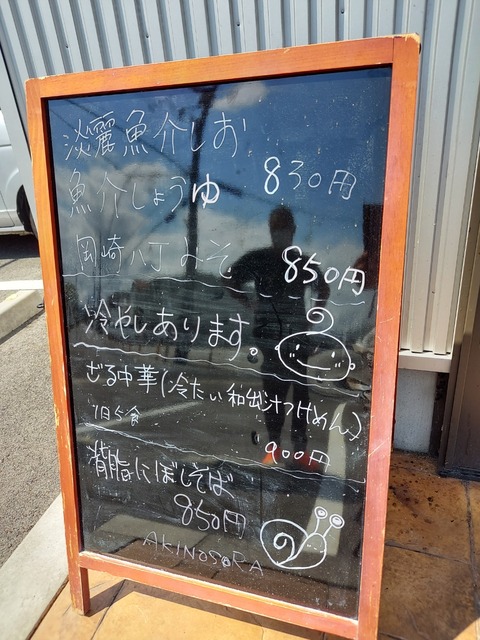 淡麗魚介しお
魚介しょうゆ 830円
岡崎八丁みそ 850円
冷やしあります。
ざる中華(冷たい和出汁つけめん)
1日5食
900円
背脂にぼしそば
850円
AKINOSORA